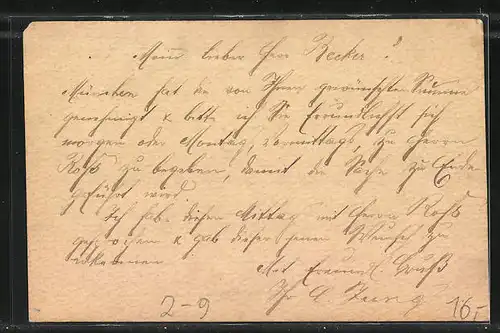 Mein lieber Herr Becker!
München hat die von Ihnen gewünschten Summe
genehmigt & bitte ich Sie freundlichst sich
morgen oder Montag Vormittags, zu Herrn
Rohs zu begeben, damit die Sache zu Ende
geführt wird.
Ich habe diesen Mittag mit Herrn Rohs
gesprochen & gab dieser seinen Wunsch zu
erkennen
Mit freundl. Gruß
Ihr C Jung
2-9
16,-